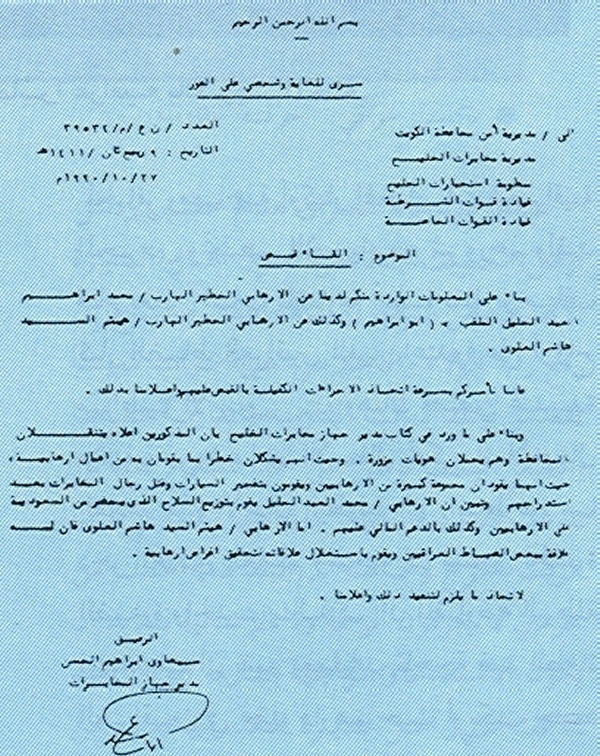 بسم الله الرحمن الرحيم
سري للغاية وشخصي على الفور
العدد / ن ع / م / ٣٩٥٣٢
الى / مديرية أمن محافظة الكويت
التاريخ : ٩ ربيع ثان / ١٤١١هـ
مديرية مخابرات الخليج
٢٧ / ١٠ / ١٩٩٠م
منظومة استخبارات الخليج
قيادة قوات الشرطة
قيادة القوات الخاصة
الموضوع : القاء قبض
بناء على المعلومات الواردة منكم لدينا عن الارهابي الخطير الهارب / محمد ابراهيم
احمد الخليل الملقب به ( ابو ابراهيم ) وكذلك عن الارهابي الخطير الهارب / هيثم السيد
هاشم العلوى .
فاننا نأمركم بسرعة اتخاذ الاجراءات الكفيلة بالقبض عليهم واعلامنا بذلك .
وبناء على ما ورد في كتاب مدير جهاز مخابرات الخليج بان المذكورين اعلاه يتنقلان
المحافظة وهم يحملان هويات مزورة . وحيث انهم يشكلان خطرا بما يقومان به من اعمال ارهابية ،
حيث انهما يقودان مجموعة كبيرة من الارهابيين ويقومون بتفجير السيارات وقتل رجال المخابرات بعد
استدراجهم وتبين ان الارهابي / محمد احمد الخليل يقوم بتوزيع السلاح الذى يحضر من السعودية
على الارهابيين وكذلك بالدعم المالي عليهم . اما الارهابي / هيثم السيد هاشم العلوى فان له
علاقة ببعض الضباط العراقيين ويقوم باستغلال علاقاته لتحقيق اغراض ارهابية .
لاتخاذ ما يلزم لتنفيذ ذلك واعلامنا .
الرفيق
سبعاوى ابراهيم الحسن
مدير جهاز المخابرات